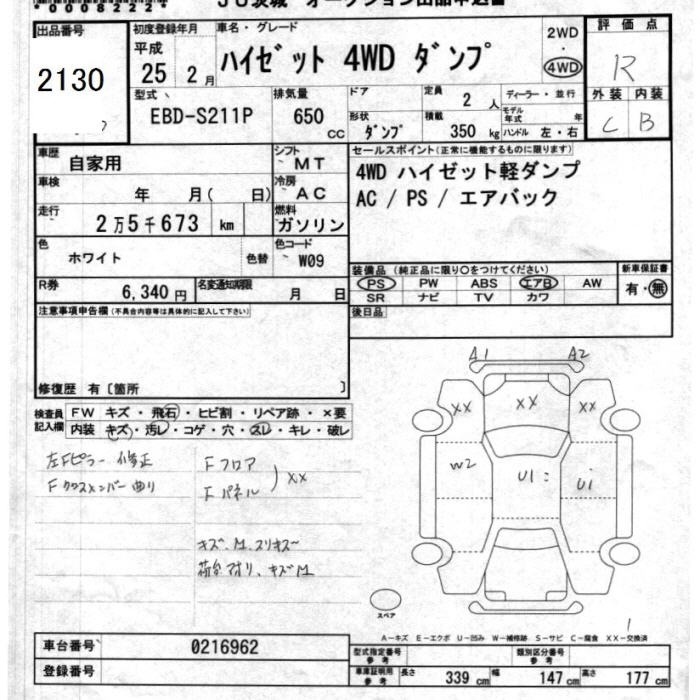 *0008222*
JU茨城 オークション出品申込書
出品番号
2130
初度登録年月
平成
25 2月
車名・グレード
ハイゼット 4WD ダンプ
2WD
・
4WD
評価点
R
外装 内装
C B
型式
EBD-S211P
排気量
650
CC
ドア
形状
ダンプ
定員
2人
積載
350 kg
ディーラー・並行
モデル年式 年
ハンドル 左・右
車歴
自家用
シフト
MT
セールスポイント(正常に機能するものに限ります)
4WD ハイゼット軽ダンプ
AC / PS / エアバック
車検
年 月( 日)
冷房
AC
走行
2万5千673 km
燃料
ガソリン
色
ホワイト
色替
色コード
W09
装備品(純正品に限り○をつけてください)
PS PW ABS エアB AW
SR ナビ TV カワ
新車保証書
有・無
R券
6,340円
名変通知期限
月 日
後日品
注意事項申告欄(不具合内容等は具体的に記入して下さい)
修復歴 有〔箇所 〕
検査員記入欄
FW キズ・飛石・ヒビ割・リペア跡・×要
内装 キズ・汚レ・コゲ・穴・スレ・キレ・破レ
左Fピラー 修正
Fクロスメンバー曲り
Fフロア
Fパネル
) XX
キズ、M、スリキズ
荷台アオリ、キズM
A1 A2
XX XX XX
W2 U1 Ui
スペア
1
A-キズ E-エクボ U-凹み W-補修跡 S-サビ C-腐食 XX-交換済
車台番号
0216962
登録番号
型式指定番号
参考
類別区分番号
参考
車庫証明用
参考
長さ 339 cm 幅 147 cm 高さ 177 cm